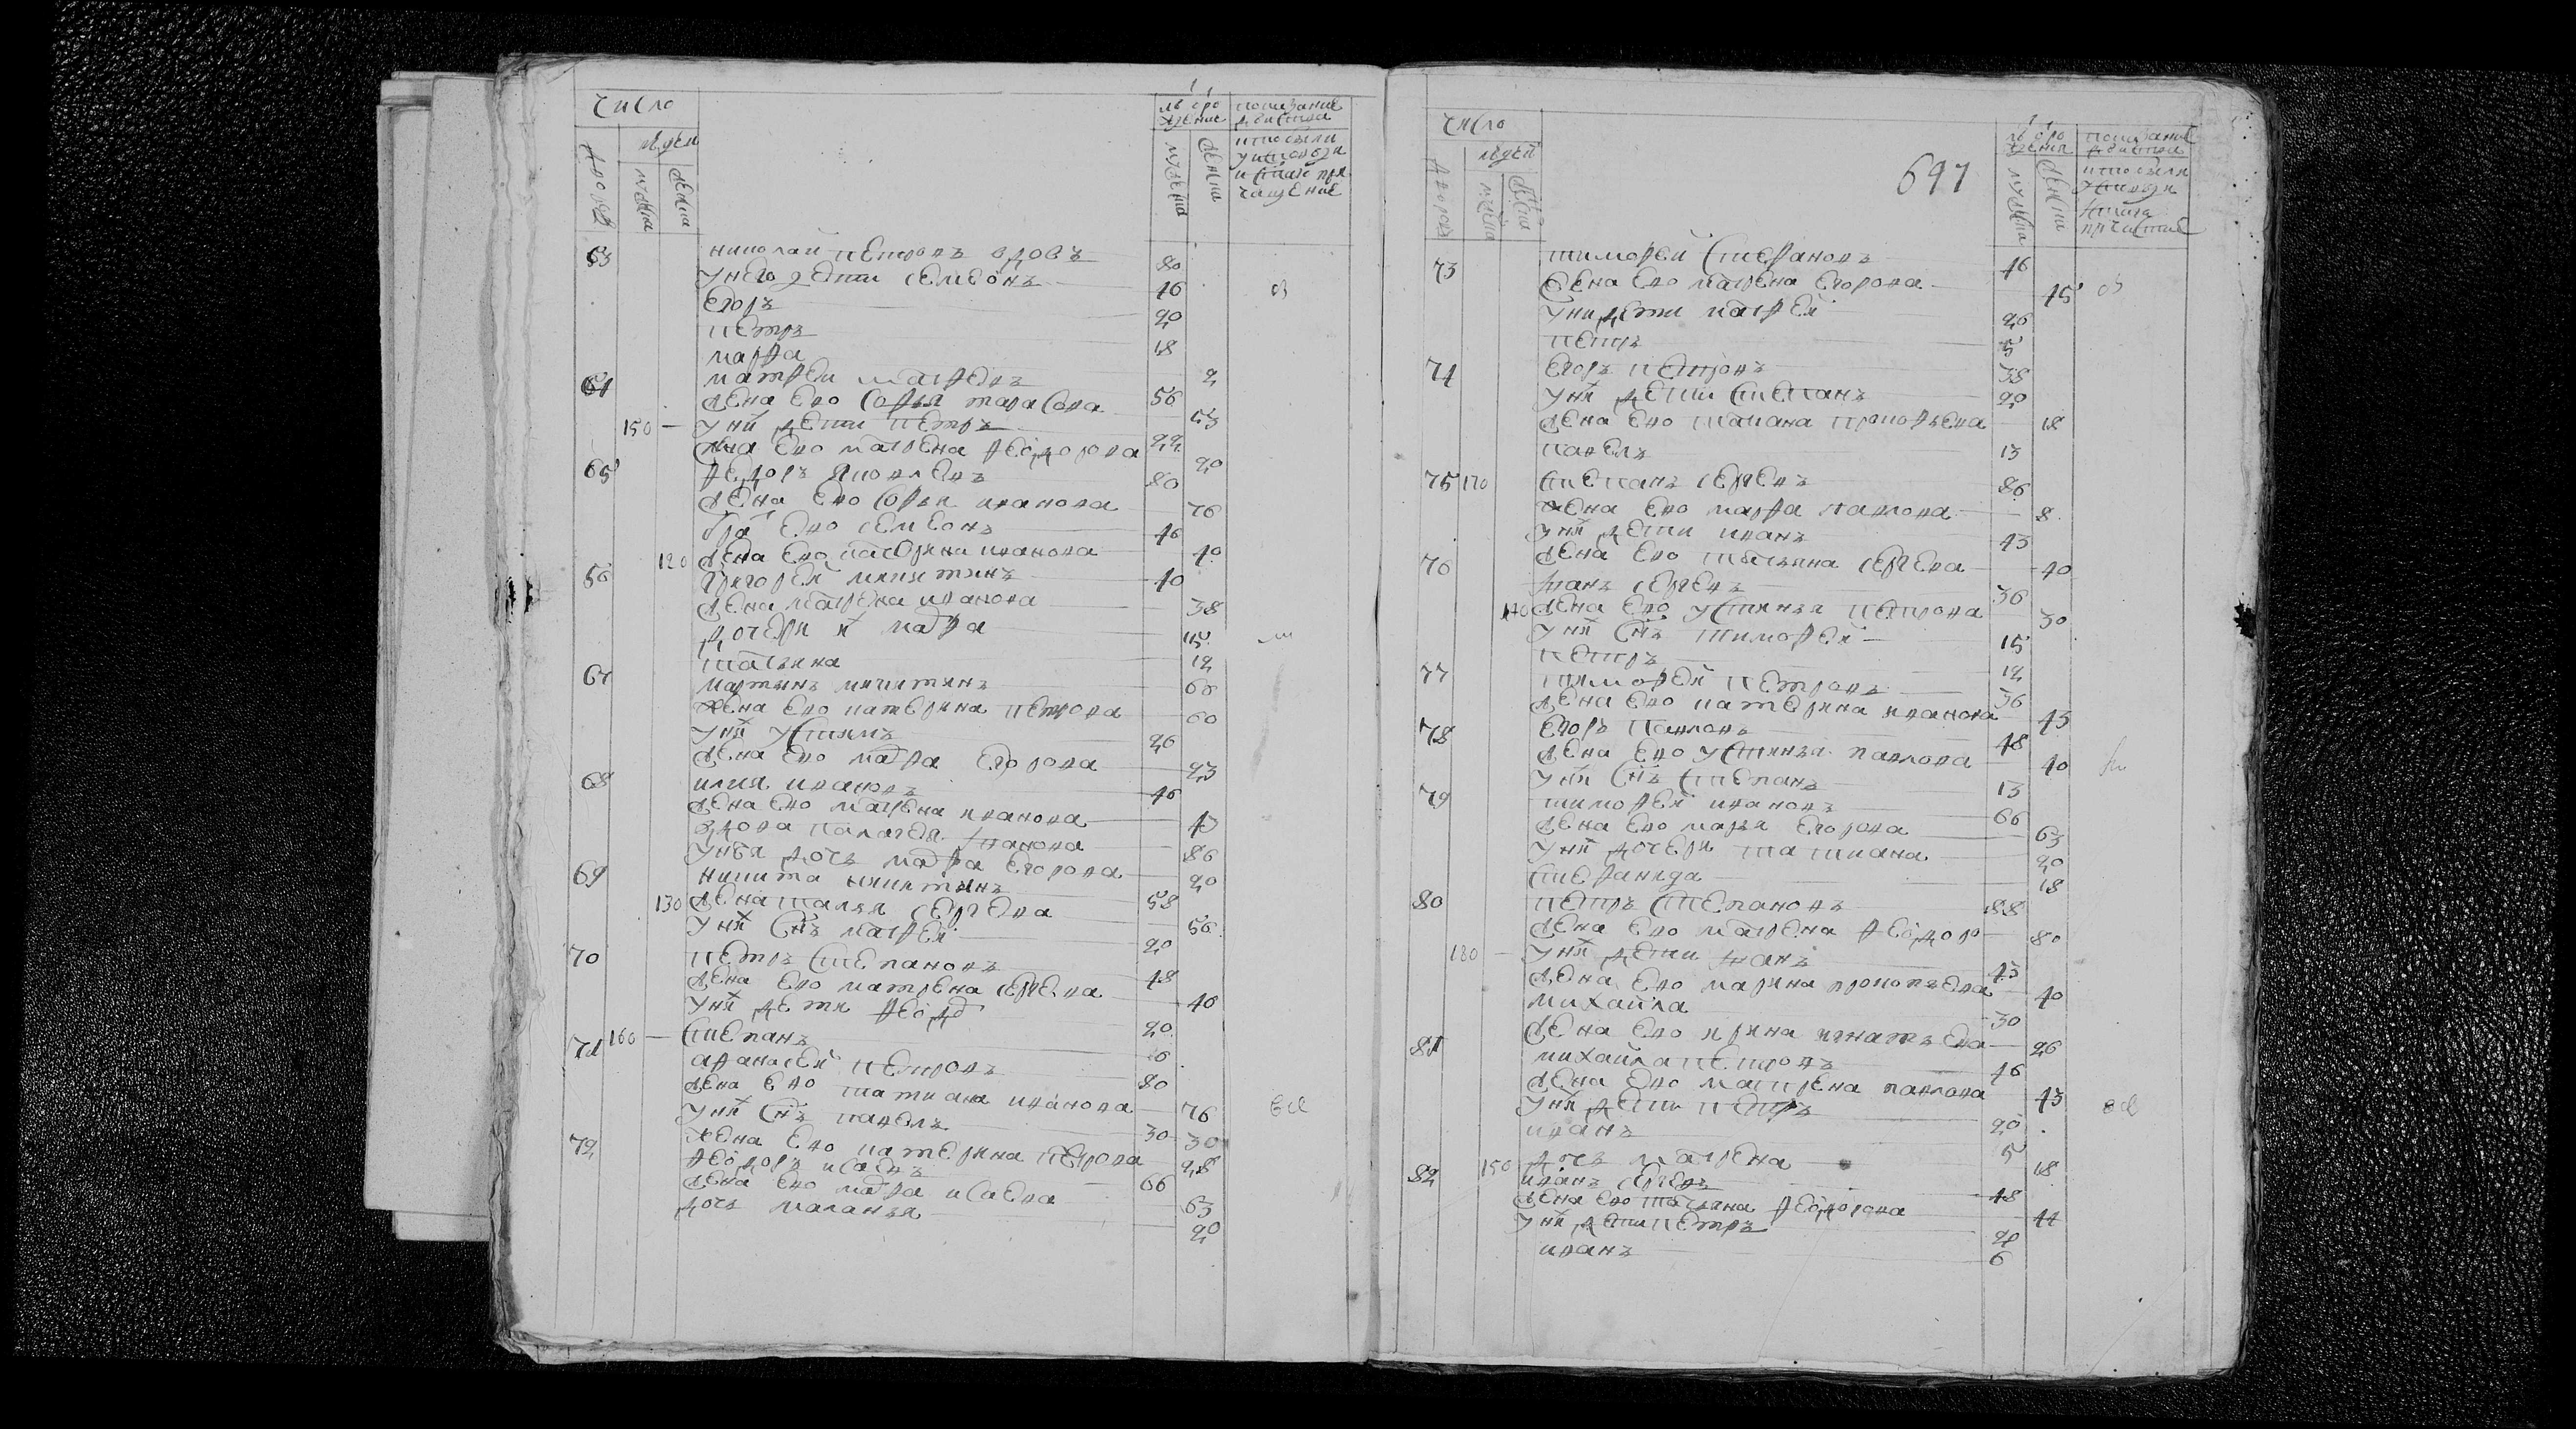 число
людей
дворов
мужеска
женска
лѣт от рождения
мужеска
женска
показание
действа
кто были
у исповѣди
и святаго при
чащения
63 николай петровъ вдовъ 80
у него дети семеонъ 46
егоръ 20
петръ 18
марфа 2
64 матфеи матфеевъ 56
жена ево софья тарасова 53
150 у них дети петръ 22
жена ево матрена феодорова 20
65 федоръ яковлевъ 80
жена ево софья иванова 76
брат ево семеонъ 46
120 жена ево катерина иванова 40
66 григорей никитинъ 40
жена матрена иванова 38
дочери их марфа 15
татьяна 12
67 мартинъ никитинъ 66
жена ево катерина петрова 60
у них устимъ 26
жена ево марфа егорова 23
68 илия ивановъ 46
жена ево матрена иванова 43
вдова палагея иванова 86
у нея дочь марфа егорова 20
69 никита никитинъ 58
130 жена наталья сергева 56
у них снъ матфей 20
70 петръ степановъ 48
жена ево матрена сергева 46
у них дети феодоръ 20
160 степанъ 6
71 афанасей петровъ 80
жена ево татиана иванова 76
у них снъ павелъ 30 30
жена ево катерина петрова 28
72 феодоръ исаевъ 66
жена ево марфа исаева 63
дочь маланья 20
697
число
людей
дворов
мужеска
женска
лѣт от рождения
мужеска
женска
показание
действа
кто были
у исповѣди
73 тимофей стефановъ 46
жена ево матрена егорова 45
у них дети матфей 26
петръ 5
74 егоръ петровъ 38
у них дети степанъ 20
жена ево татиана прокофьева 18
павелъ 13
75 170 степанъ сергевъ 86
жена ево марфа павлова 8
у них дети иванъ 43
жена ево татьяна сергева 40
76 иванъ сергевъ 36
140 жена ево устинья петрова 30
у них снъ тимофей 15
петръ 12
77 тимофей петровъ 56
жена ево катерина иванова 43
78 егоръ павловъ 48
жена ево устинья павлова 40
у них снъ степанъ 13
79 тимофей ивановъ 66
жена ево марья егорова 63
у них дочери татиана 20
стефанида 18
80 петръ степановъ 88
жена ево матрена феодор 80
180 у них дети иванъ 43
жена ево марина прокопьева 40
михайла 30
жена ево ирина игнатьева 26
81 михайла петровъ 46
жена ево матрена павлова 43
у них дети петръ 20
иванъ 5
дочь матрена 18
82 150 иванъ сергевъ 48
жена ево татьяна феодорова 44
у них дети петръ 20
иванъ 6